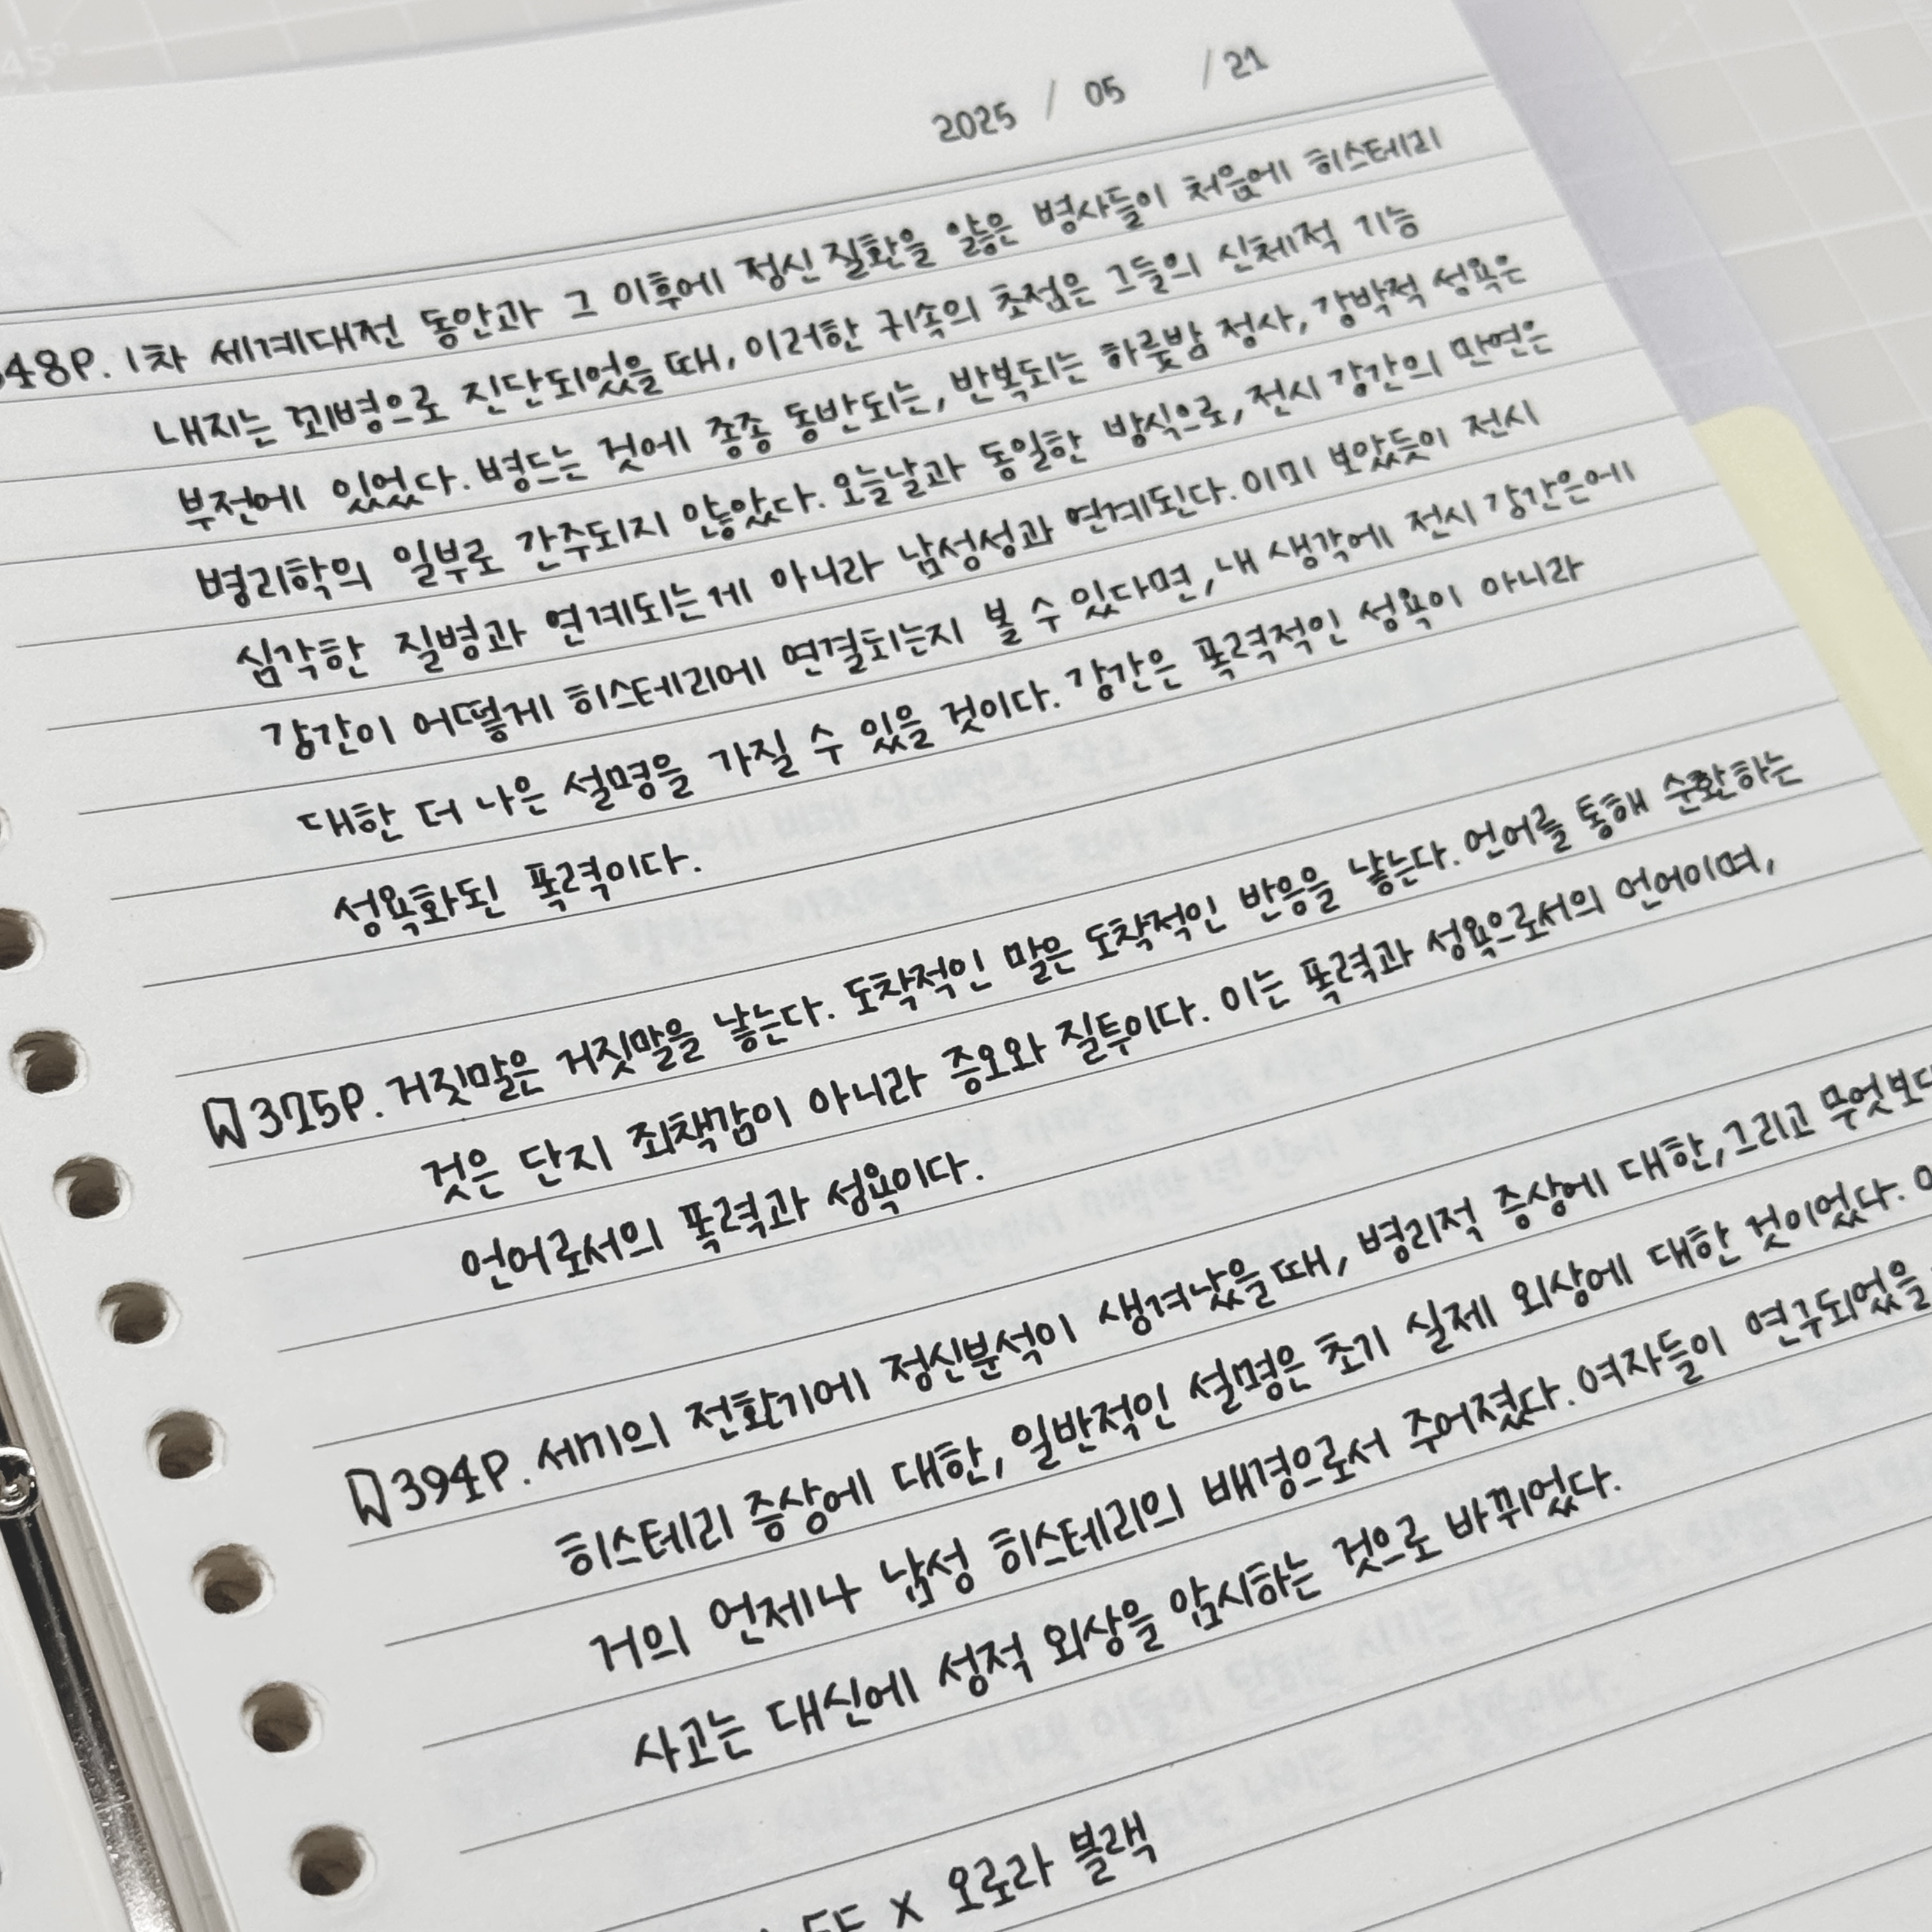 2025 / 05 / 21
48P. 1차 세계대전 동안과 그 이후에 정신 질환을 앓은 병사들이 처음에 히스테리
내지는 꾀병으로 진단되었을 때, 이러한 귀속의 초점은 그들의 신체적 기능
부전에 있었다. 병드는 것에 종종 동반되는, 반복되는 하룻밤 정사, 강박적 성욕은
병리학의 일부로 간주되지 않았다. 오늘날과 동일한 방식으로, 전시 강간의 만연은
심각한 질병과 연계되는게 아니라 남성성과 연계된다. 이미 보았듯이 전시
강간이 어떻게 히스테리에 연결되는지 볼 수 있다면, 내 생각에 전시 강간은에
대한 더 나은 설명을 가질 수 있을 것이다. 강간은 폭력적인 성욕이 아니라
성욕화된 폭력이다.
375P. 거짓말은 거짓말을 낳는다. 도착적인 말은 도착적인 반응을 낳는다. 언어를 통해 순환하는
것은 단지 죄책감이 아니라 증오와 질투이다. 이는 폭력과 성욕으로서의 언어이며,
언어로서의 폭력과 성욕이다.
394P. 세기의 전환기에 정신분석이 생겨났을 때, 병리적 증상에 대한, 그리고 무엇보다
히스테리 증상에 대한, 일반적인 설명은 초기 실제 외상에 대한 것이었다.
거의 언제나 남성 히스테리의 배경으로서 주어졌다. 여자들이 연구되었을
사고는 대신에 성적 외상을 암시하는 것으로 바뀌었다.
x 오로라 블랙